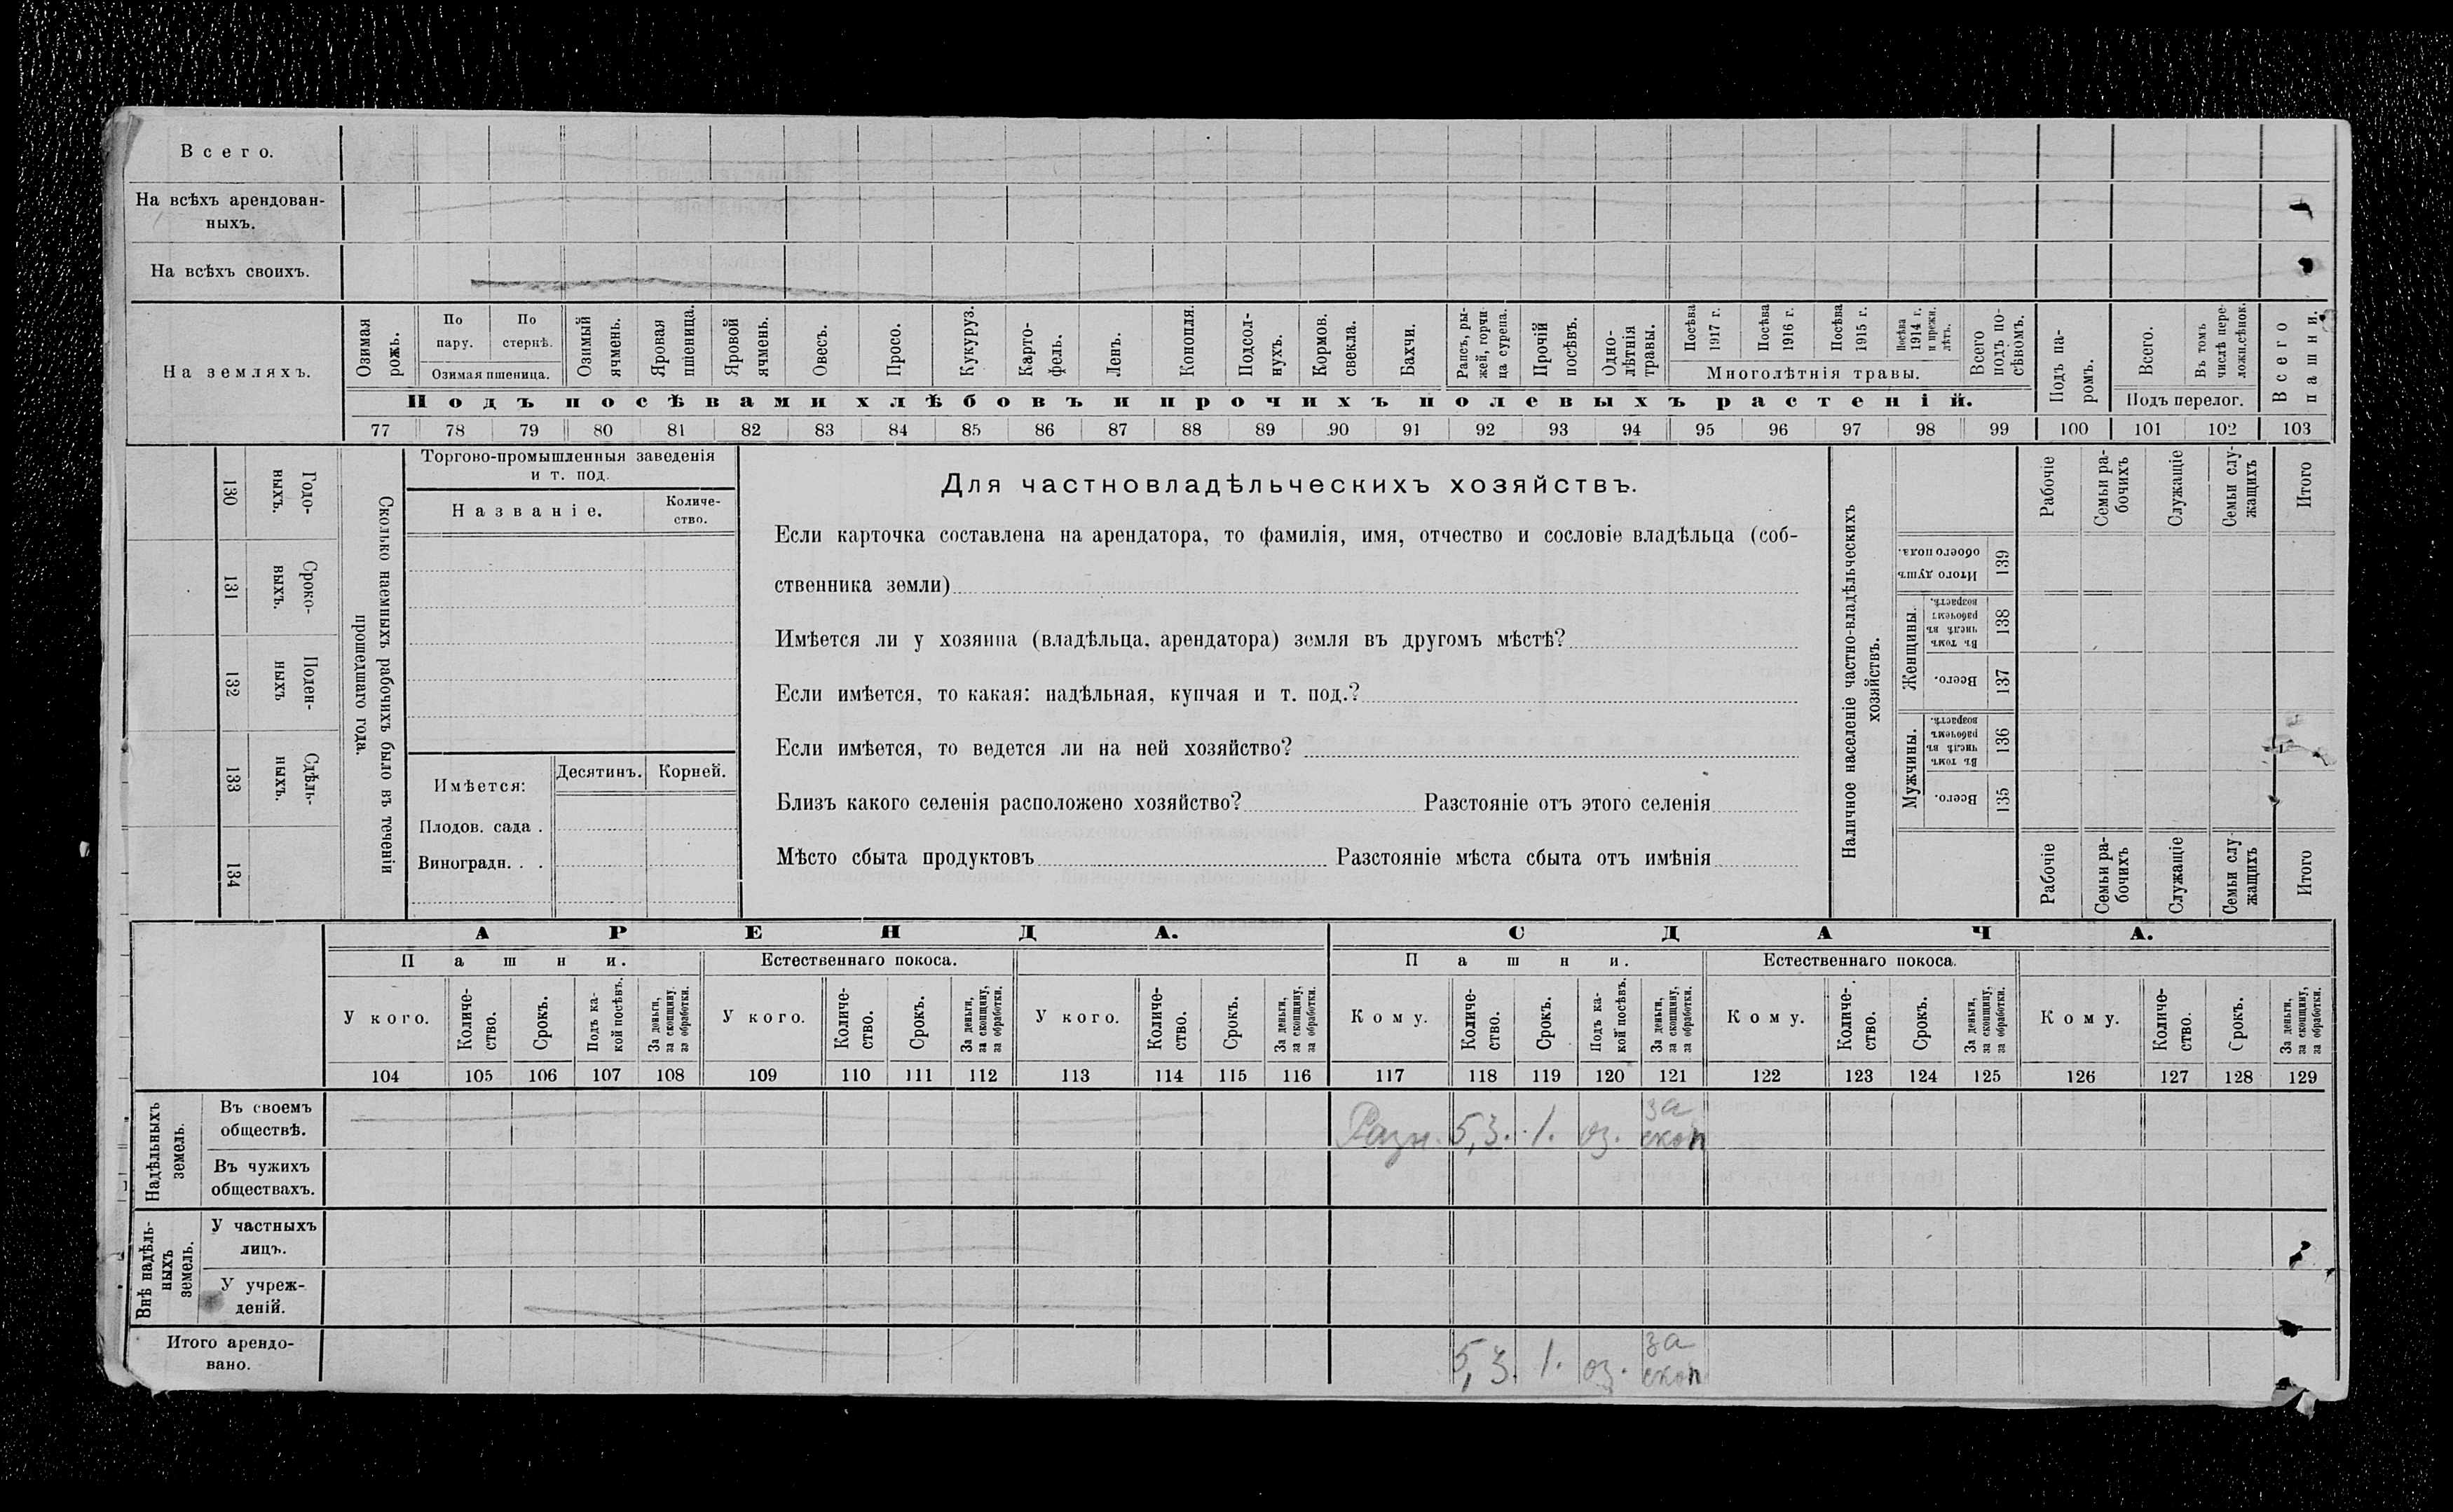 Всего.
На всѣхъ арендован-
ныхъ.
На всѣхъ своихъ.
На земляхъ.
Озимая рожь.
По пару.
По стернѣ.
Озимая пшеница.
Озимый ячмень.
Яровая пшеница.
Яровой ячмень.
Овесъ.
Просо.
Кукуруз.
Карто-
фель.
Ленъ.
Конопля.
Подсол-
нухъ.
Кормов. свекла.
Бахчи.
Рапсъ, ры-
жей, горчи-
ца сурепа.
Прочій посѣвъ.
Одно-
лѣтнія травы.
Посѣва 1917 г.
Посѣва 1916 г.
Посѣва 1915 г.
Посѣва 1914 г. и прежн. лѣтъ.
Многолѣтнія травы.
Всего подъ по-
сѣвомъ.
Подъ па-
ромъ.
Всего.
Въ томъ числѣ пере-
ложн. сѣнок.
Подъ перелог.
Всего пашни.
Подъ посѣвами хлѣбовъ и прочихъ полевыхъ растеній.
77 78 79 80 81 82 83 84 85 86 87 88 89 90 91 92 93 94 95 96 97 98 99 100 101 102 103
Сколько наемныхъ рабочихъ было въ теченіи
прошедшаго года.
Годо-
ныхъ.
130
Сроко-
выхъ.
131
Поден-
ныхъ
132
Сдѣль-
ныхъ.
133
134
Торгово-промышленныя заведенія
и т. под.
Названіе.
Количе-
ство.
Имѣется:
Десятинъ.
Корней.
Плодов. сада .
Виноградн. . .
Для частновладѣльческихъ хозяйствъ.
Если карточка составлена на арендатора, то фамилія, имя, отчество и сословіе владѣльца (соб-
ственника земли)
Имѣется ли у хозяина (владѣльца, арендатора) земля въ другомъ мѣстѣ?
Если имѣется, то какая: надѣльная, купчая и т. под.?
Если имѣется, то ведется ли на ней хозяйство?
Близъ какого селенія расположено хозяйство? Разстояніе отъ этого селенія
Мѣсто сбыта продуктовъ Разстояніе мѣста сбыта отъ имѣнія
Наличное населеніе частно-владѣльческихъ
хозяйствъ.
Рабочіе
Семьи ра-
бочихъ
Служащіе
Семьи слу-
жащихъ
Итого
Итого душъ обоего пола.
139
Женщины.
Въ томъ числѣ въ рабочемъ возрастѣ.
138
Всего.
137
Мужчины.
Въ томъ числѣ въ рабочемъ возрастѣ.
136
Всего.
135
Рабочіе
Семьи ра-
бочихъ
Служащіе
Семьи слу
жащихъ
Итого
АРЕНДА.
СДАЧА.
Пашни.
Естественнаго покоса.
Пашни.
Естественнаго покоса.
У кого.
Количе-
ство.
Срокъ.
Подъ ка-
кой посѣвъ.
За деньги,
за скопщину,
за обработки.
У кого.
Количе-
ство.
Срокъ.
За деньги,
за скопщину,
за обработки.
У кого.
Количе-
ство.
Срокъ.
За деньги,
за скопщину,
за обработки.
Кому.
Количе-
ство.
Срокъ.
Подъ ка-
кой посѣвъ.
За деньги,
за скопщину,
за обработки.
Кому.
Количе-
ство.
Срокъ.
За деньги,
за скопщину,
за обработки.
Кому.
Количе-
ство.
Срокъ.
За деньги,
за скопщину,
за обработки.
104 105 106 107 108 109 110 111 112 113 114 115 116 117 118 119 120 121 122 123 124 125 126 127 128 129
Надѣльныхъ
земель.
Въ своемъ
обществѣ.
Разн. 5,3. 1. оз. за
скоп
Въ чужихъ
обществахъ.
Внѣ надѣль-
ныхъ
земель.
У частныхъ
лицъ.
У учреж-
деній.
Итого арендо-
вано.
5,3. 1. оз. за
скоп